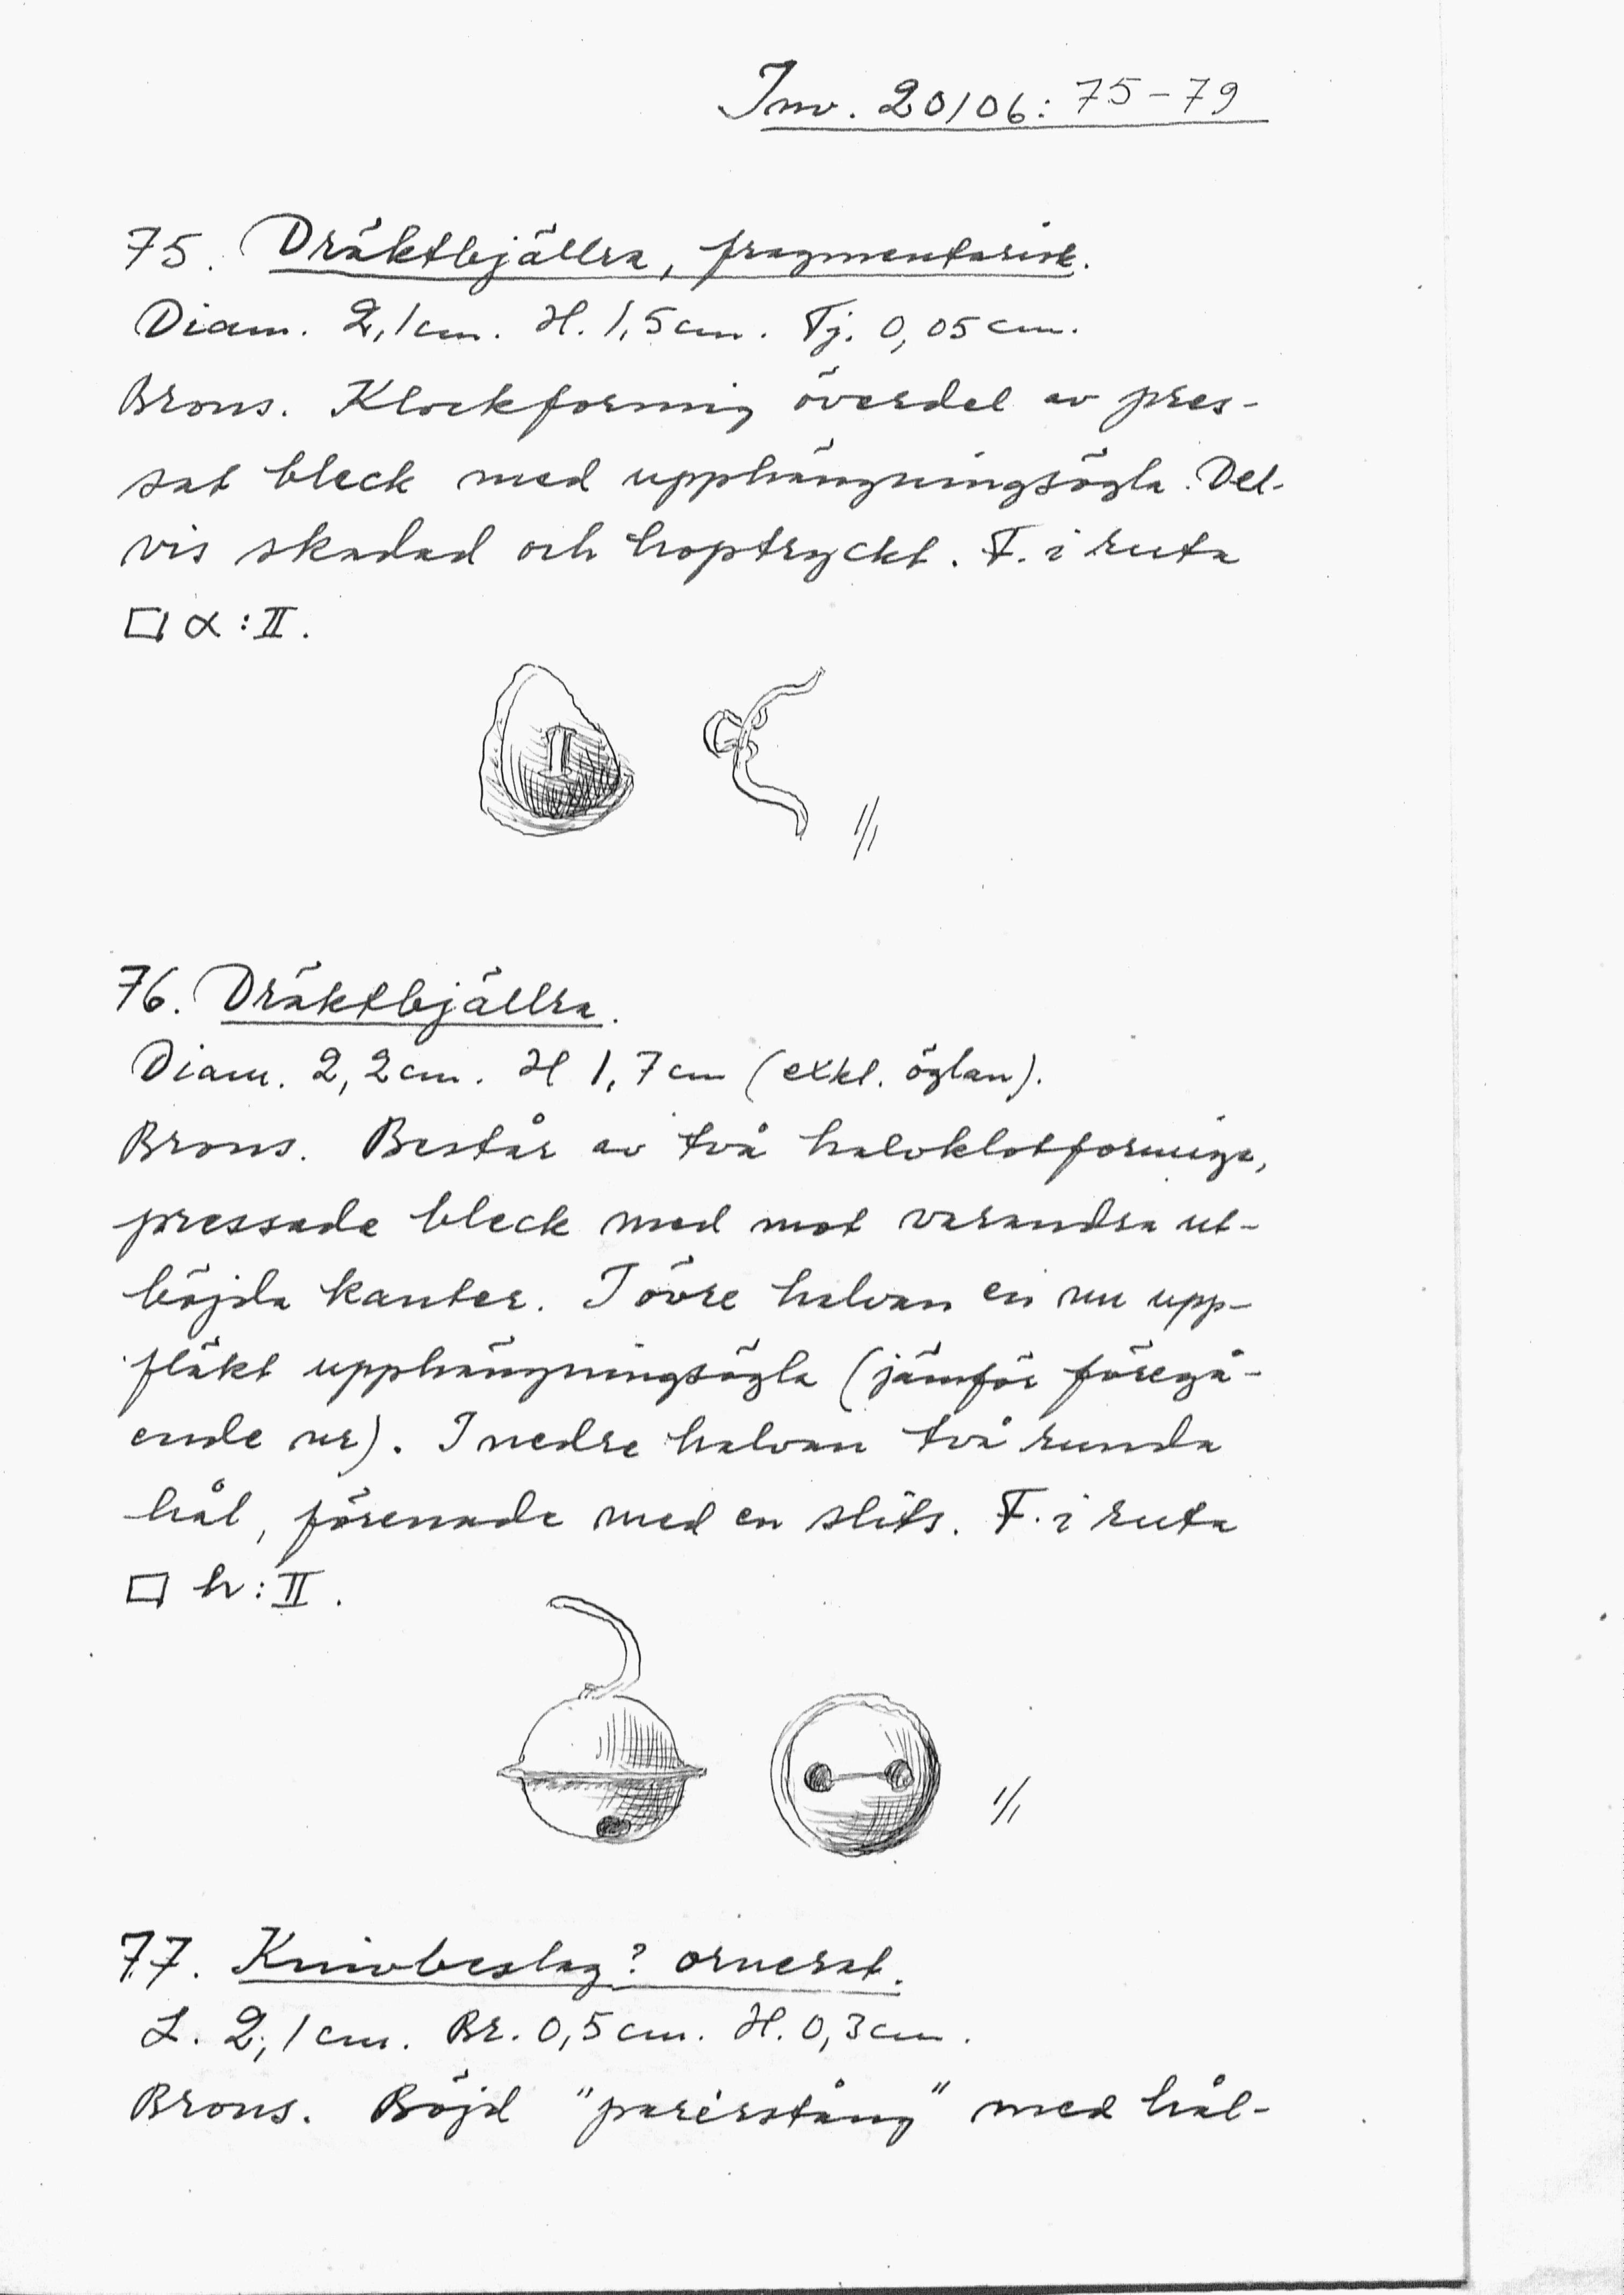 Inv. 20106: 75-79
75. Dräktbjällra, fragmentarisk.
Diam. 2,1 cm. H. 1,5 cm. Tj. 0,05 cm.
Brons. Klockformig överdel av pres-
sat bleck med upphängningsögla. Del-
vis skadad och hoptryckt. F. i ruta
□ α:II.
1/1
76. Dräktbjällra.
Diam. 2,2 cm. H 1,7 cm (exkl. öglan).
Brons. Består av två halvklotformiga,
pressade bleck med mot varandra ut-
böjda kanter. I övre halvan en nu upp-
fläkt upphängningsögla (jämför föregå-
ende nr). I nedre halvan två runda
hål, förenade med en slits. F. i ruta
□ h:II.
1/1
77. Knivbeslag? ornerat.
L. 2,1 cm. Br. 0,5 cm. H. 0,3 cm.
Brons. Böjd "parérstång" med hål-